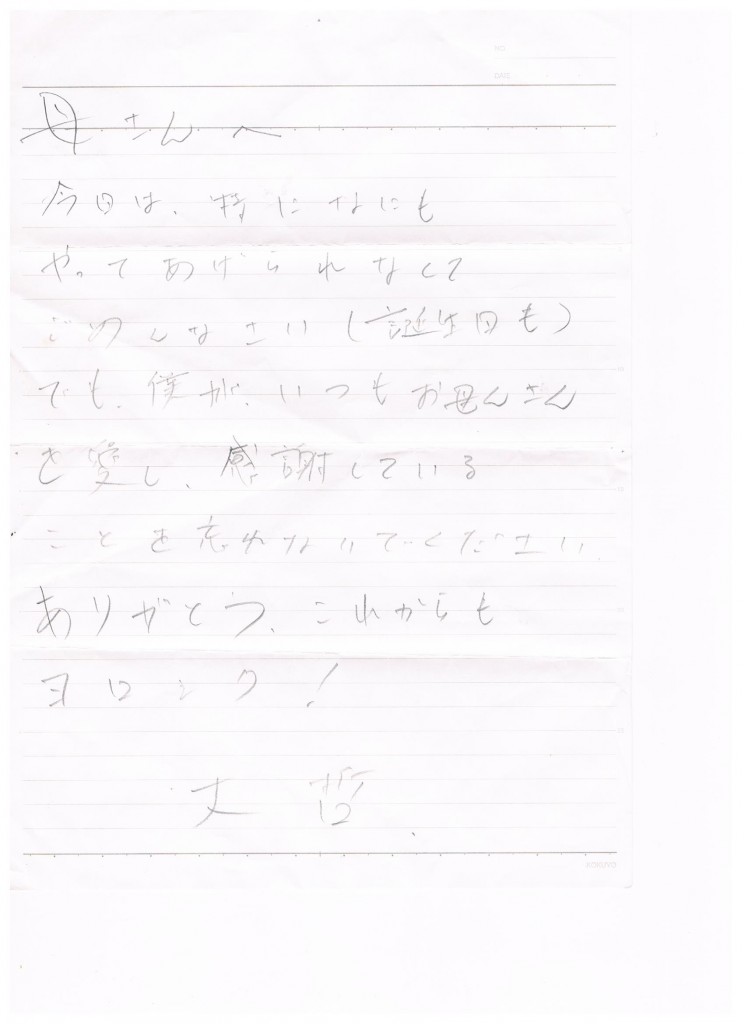 母さんへ
今日は、特になにも
やってあげられなくて
ごめんなさい(誕生日も)
でも、僕が、いつもお母んさん
を愛し、感謝している
ことを忘れないでください
ありがとう、これからも
ヨロシク!
丈哲